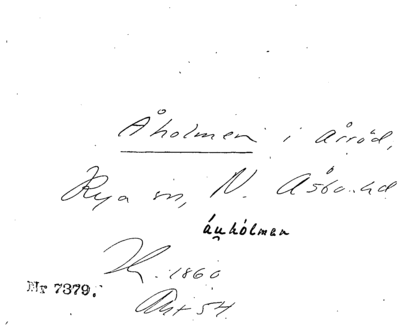 Åholmen i Årröd,
Rya sn, N. Åsbo hd
áu̯hólmen
1860
Nr 7379.
54